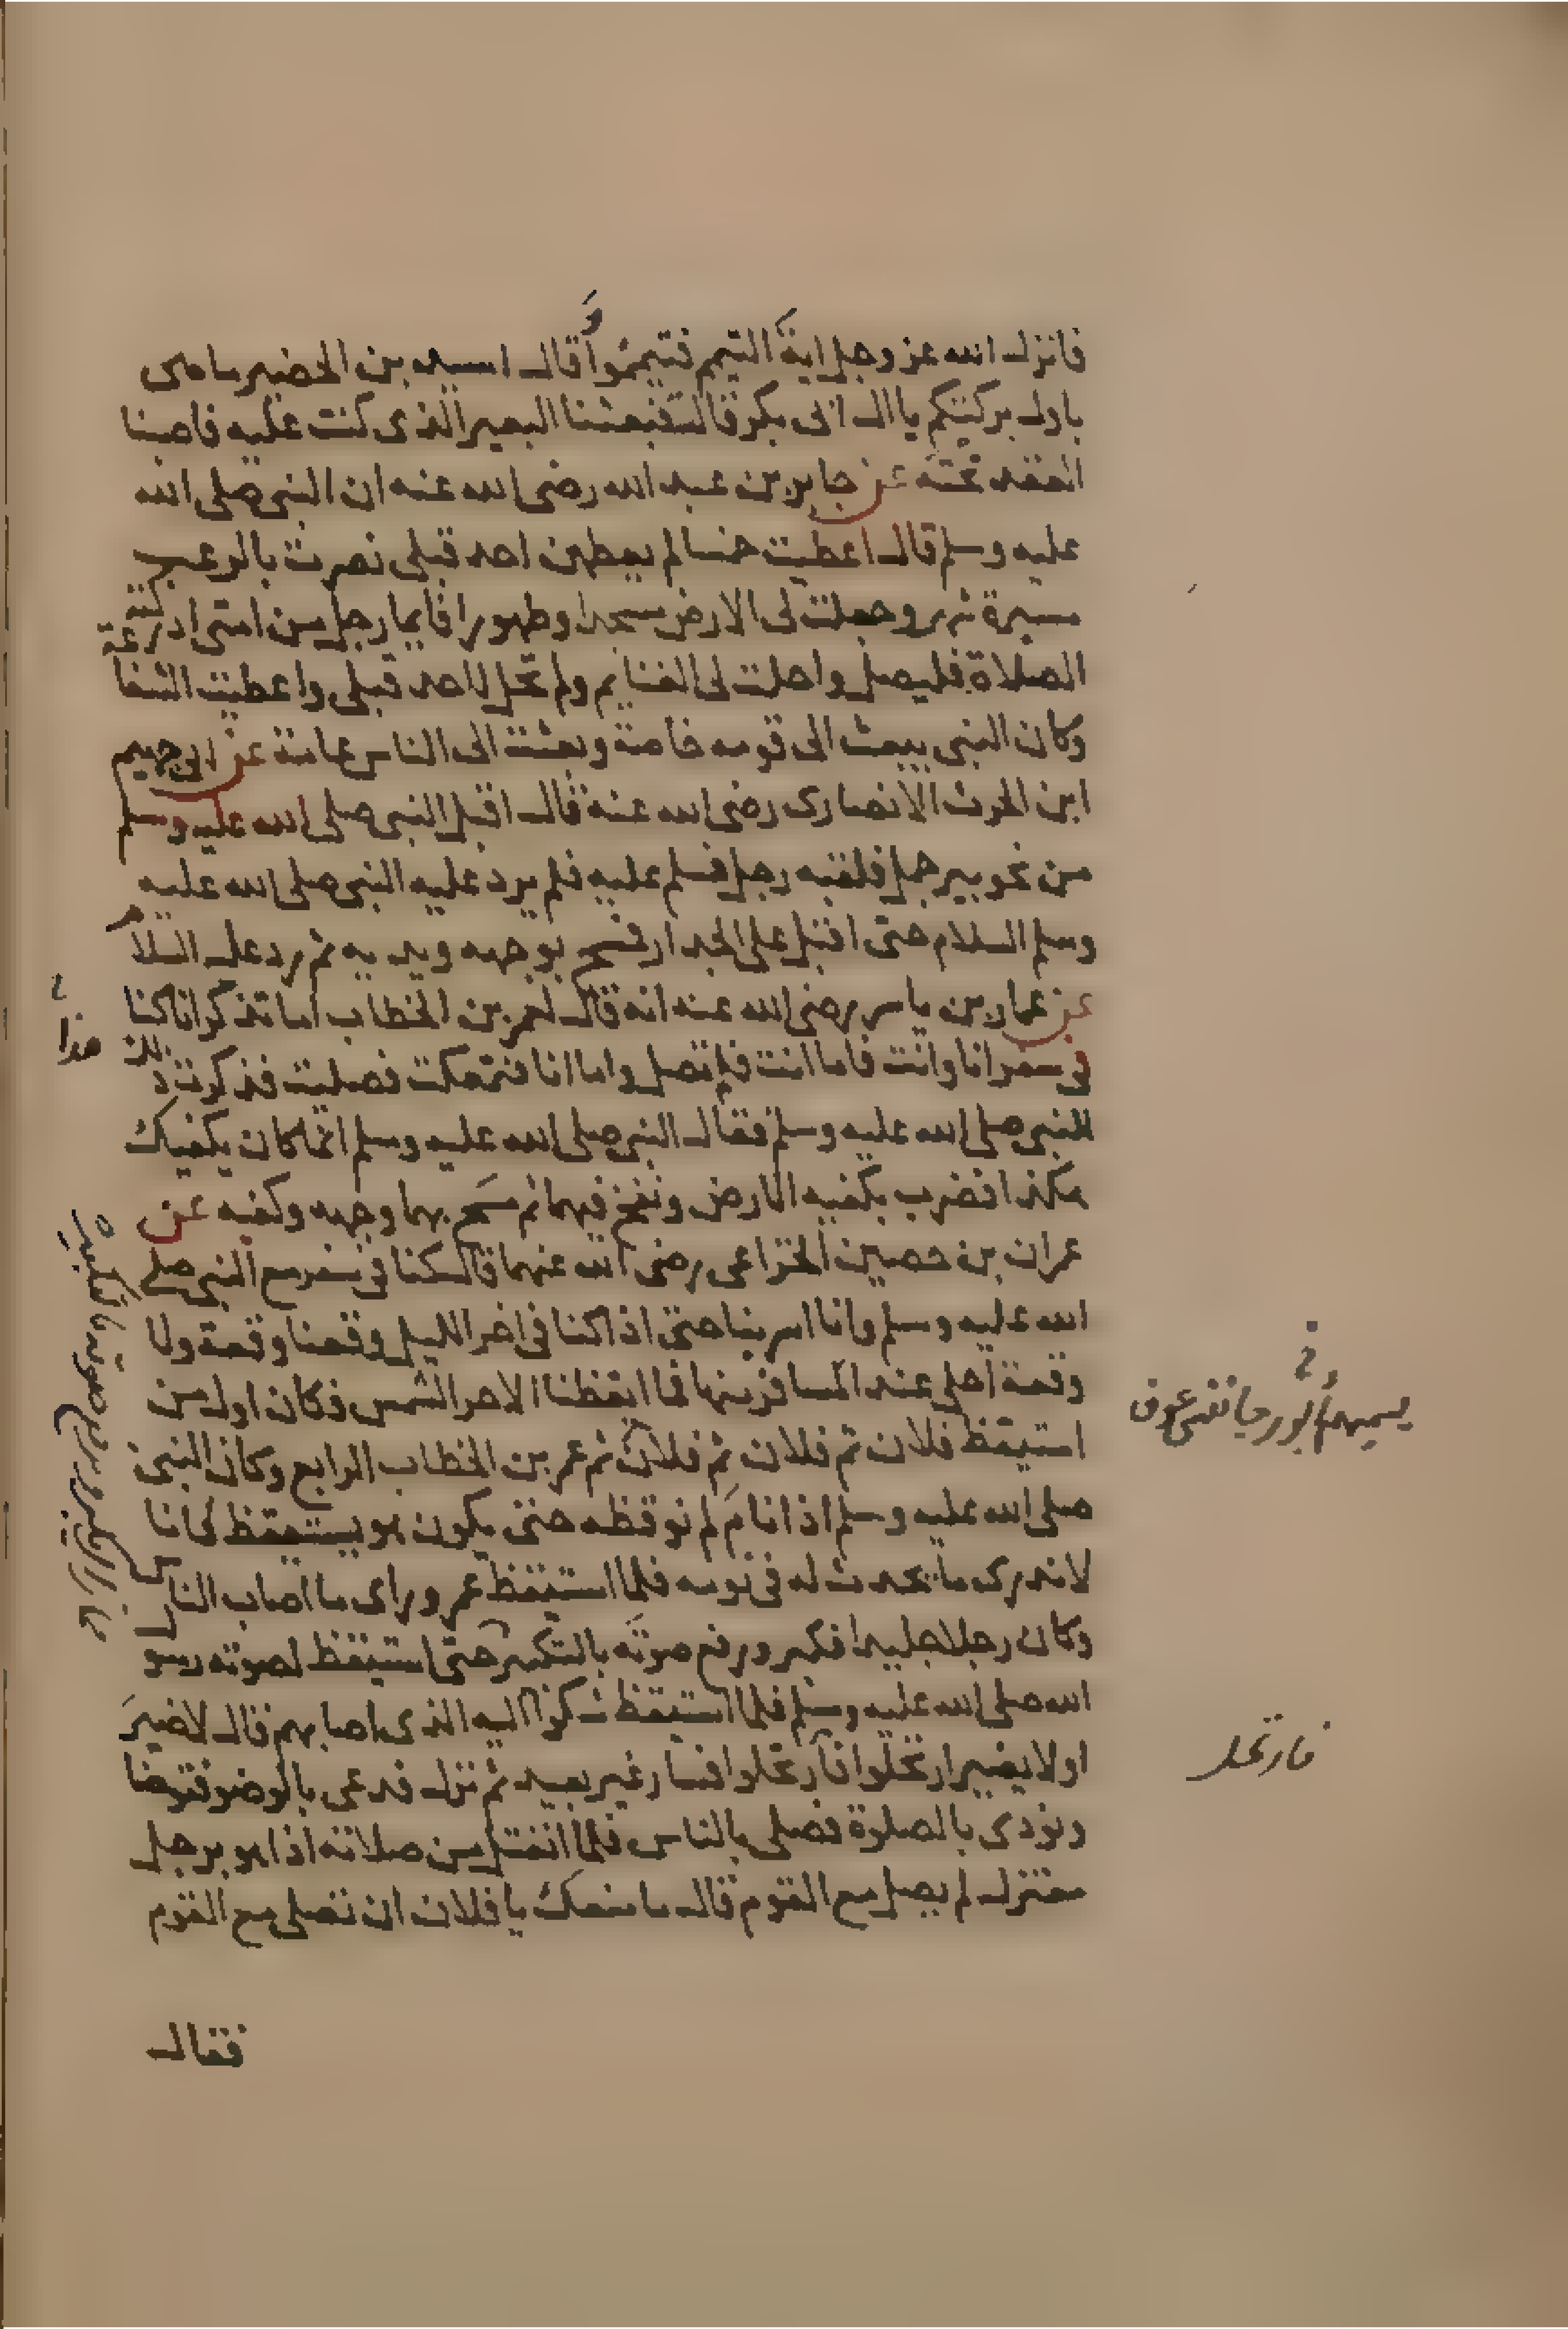 فانزل الله عز وجل اية التيمم فتيمموا قال اسيد بن الحضير ما هى
باول بركتكم يا ال ابى بكر قالت فبعثنا البعير الذى كنت عليه فاصبنا
العقد تحته عن جابر بن عبد الله رضى الله عنه ان النبى صلى الله
عليه وسلم قال اعطيت خمسا لم يعطهن احد قبلى نصرت بالرعب
مسيرة شهر وجعلت لى الارض مسجدا وطهورا فايما رجل من امتى ادركته
الصلاة فليصل واحلت لى الغنايم ولم تحل لاحد قبلى واعطيت الشفاعة
وكان النبى يبعث الى قومه خاصة وبعثت الى الناس عامة عن ابى جهيم
ابن الحرث الانصارى رضى الله عنه قال اقبل النبى صلى الله عليه وسلم
من نحو بير جمل فلقيه رجل فسلم عليه فلم يرد عليه النبى صلى الله عليه
وسلم السلام حتى اقبل على الجدار فمسح بوجهه ويديه ثم رد عليه السلام
عن عمار بن ياسر رضى الله عنه انه قال لعمر بن الخطاب اما تذكر انا كنا
فى سفر انا وانت فاما انت فلم تصل واما انا فتمعكت فصليت فذكرت ذلك
للنبى صلى الله عليه وسلم فقال النبى صلى الله عليه وسلم انما كان يكفيك
هكذا فضرب بكفيه الارض ونفخ فيهما ثم مسح بهما وجهه وكفيه عن
عمران بن حصين الخزاعى رضى الله عنهما قال كنا فى سفر مع النبى صلى
الله عليه وسلم وانا اسرينا حتى اذا كنا فى اخر الليل وقعنا وقعة ولا
وقعة احلى عند المسافر منها فما ايقظنا الا حر الشمس فكان اول من
استيقظ فلان ثم فلان ثم فلان ثم عمر بن الخطاب الرابع وكان النبى
صلى الله عليه وسلم اذا نام لم نوقظه حتى يكون هو يستيقظ لانا
لا ندرى ما يحدث له فى نومه فلما استيقظ عمر وراى ما اصاب الناس
وكان رجلا جليدا فكبر ورفع صوته بالتكبير حتى استيقظ لصوته رسول
الله صلى الله عليه وسلم فلما استيقظ شكوا اليه الذى اصابهم قال لا ضير
او لا يضير ارتحلوا فارتحلوا فسار غير بعيد ثم نزل فدعى بالوضو فتوضا
ونودى بالصلوة فصلى بالناس فلما انفتل من صلاته اذا هو برجل
معتزل لم يصل مع القوم قال ما منعك يا فلان ان تصلى مع القوم
فقال
هذا
يسميهم ابو رجا فنسى عوف
فارتحل